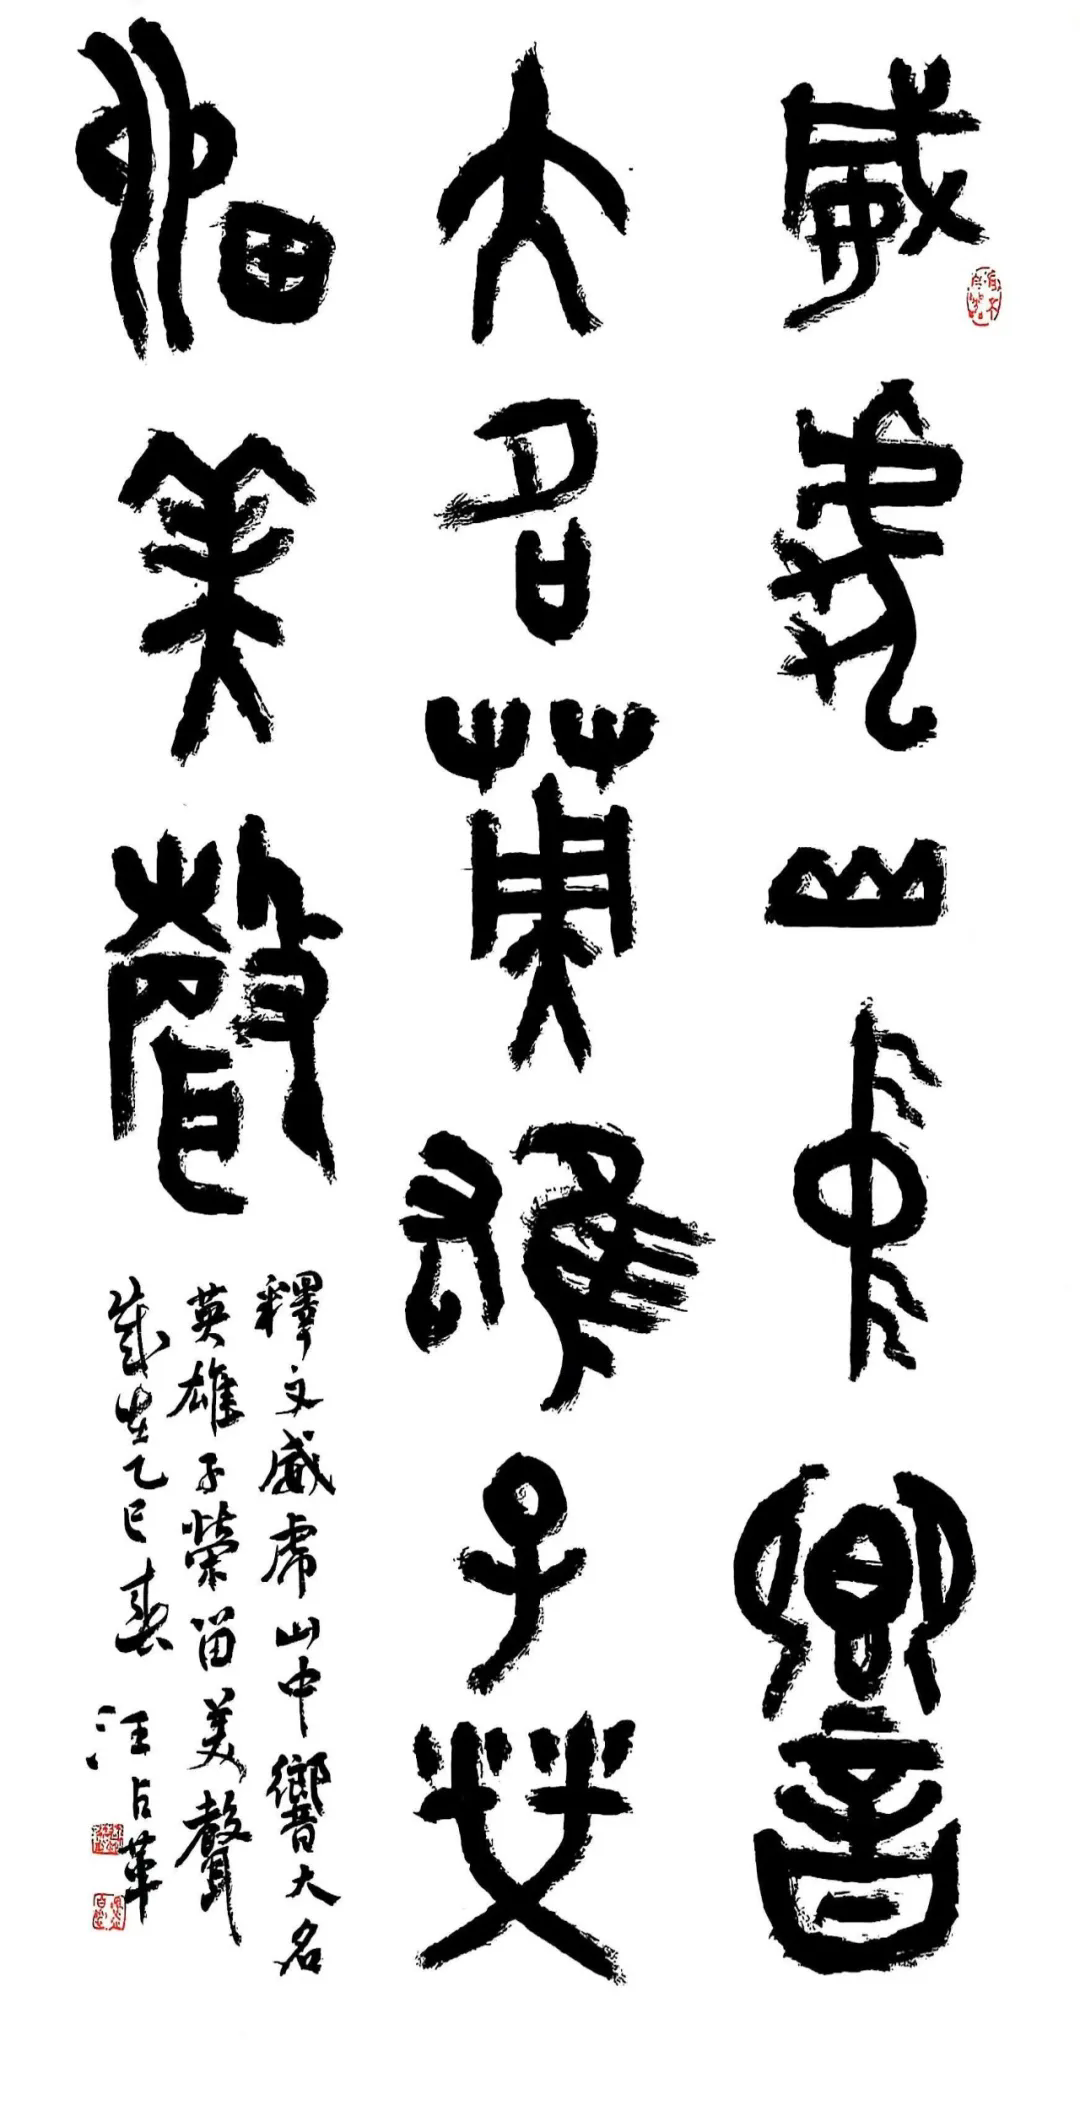 威虎山中響
大名英雄子榮
留美聲
釋文威虎山中響大名
英雄子榮留美聲
歲在乙巳春 汪占革